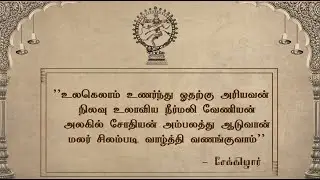 "உலகெலாம் உணர்ந்து ஓதற்கு அரியவன்
நிலவு உலாவிய நீர்மலி வேணியன்
அலகில் சோதியன் அம்பலத்து ஆடுவான்
மலர் சிலம்படி வாழ்த்தி வணங்குவாம்"
- சேக்கிழார்